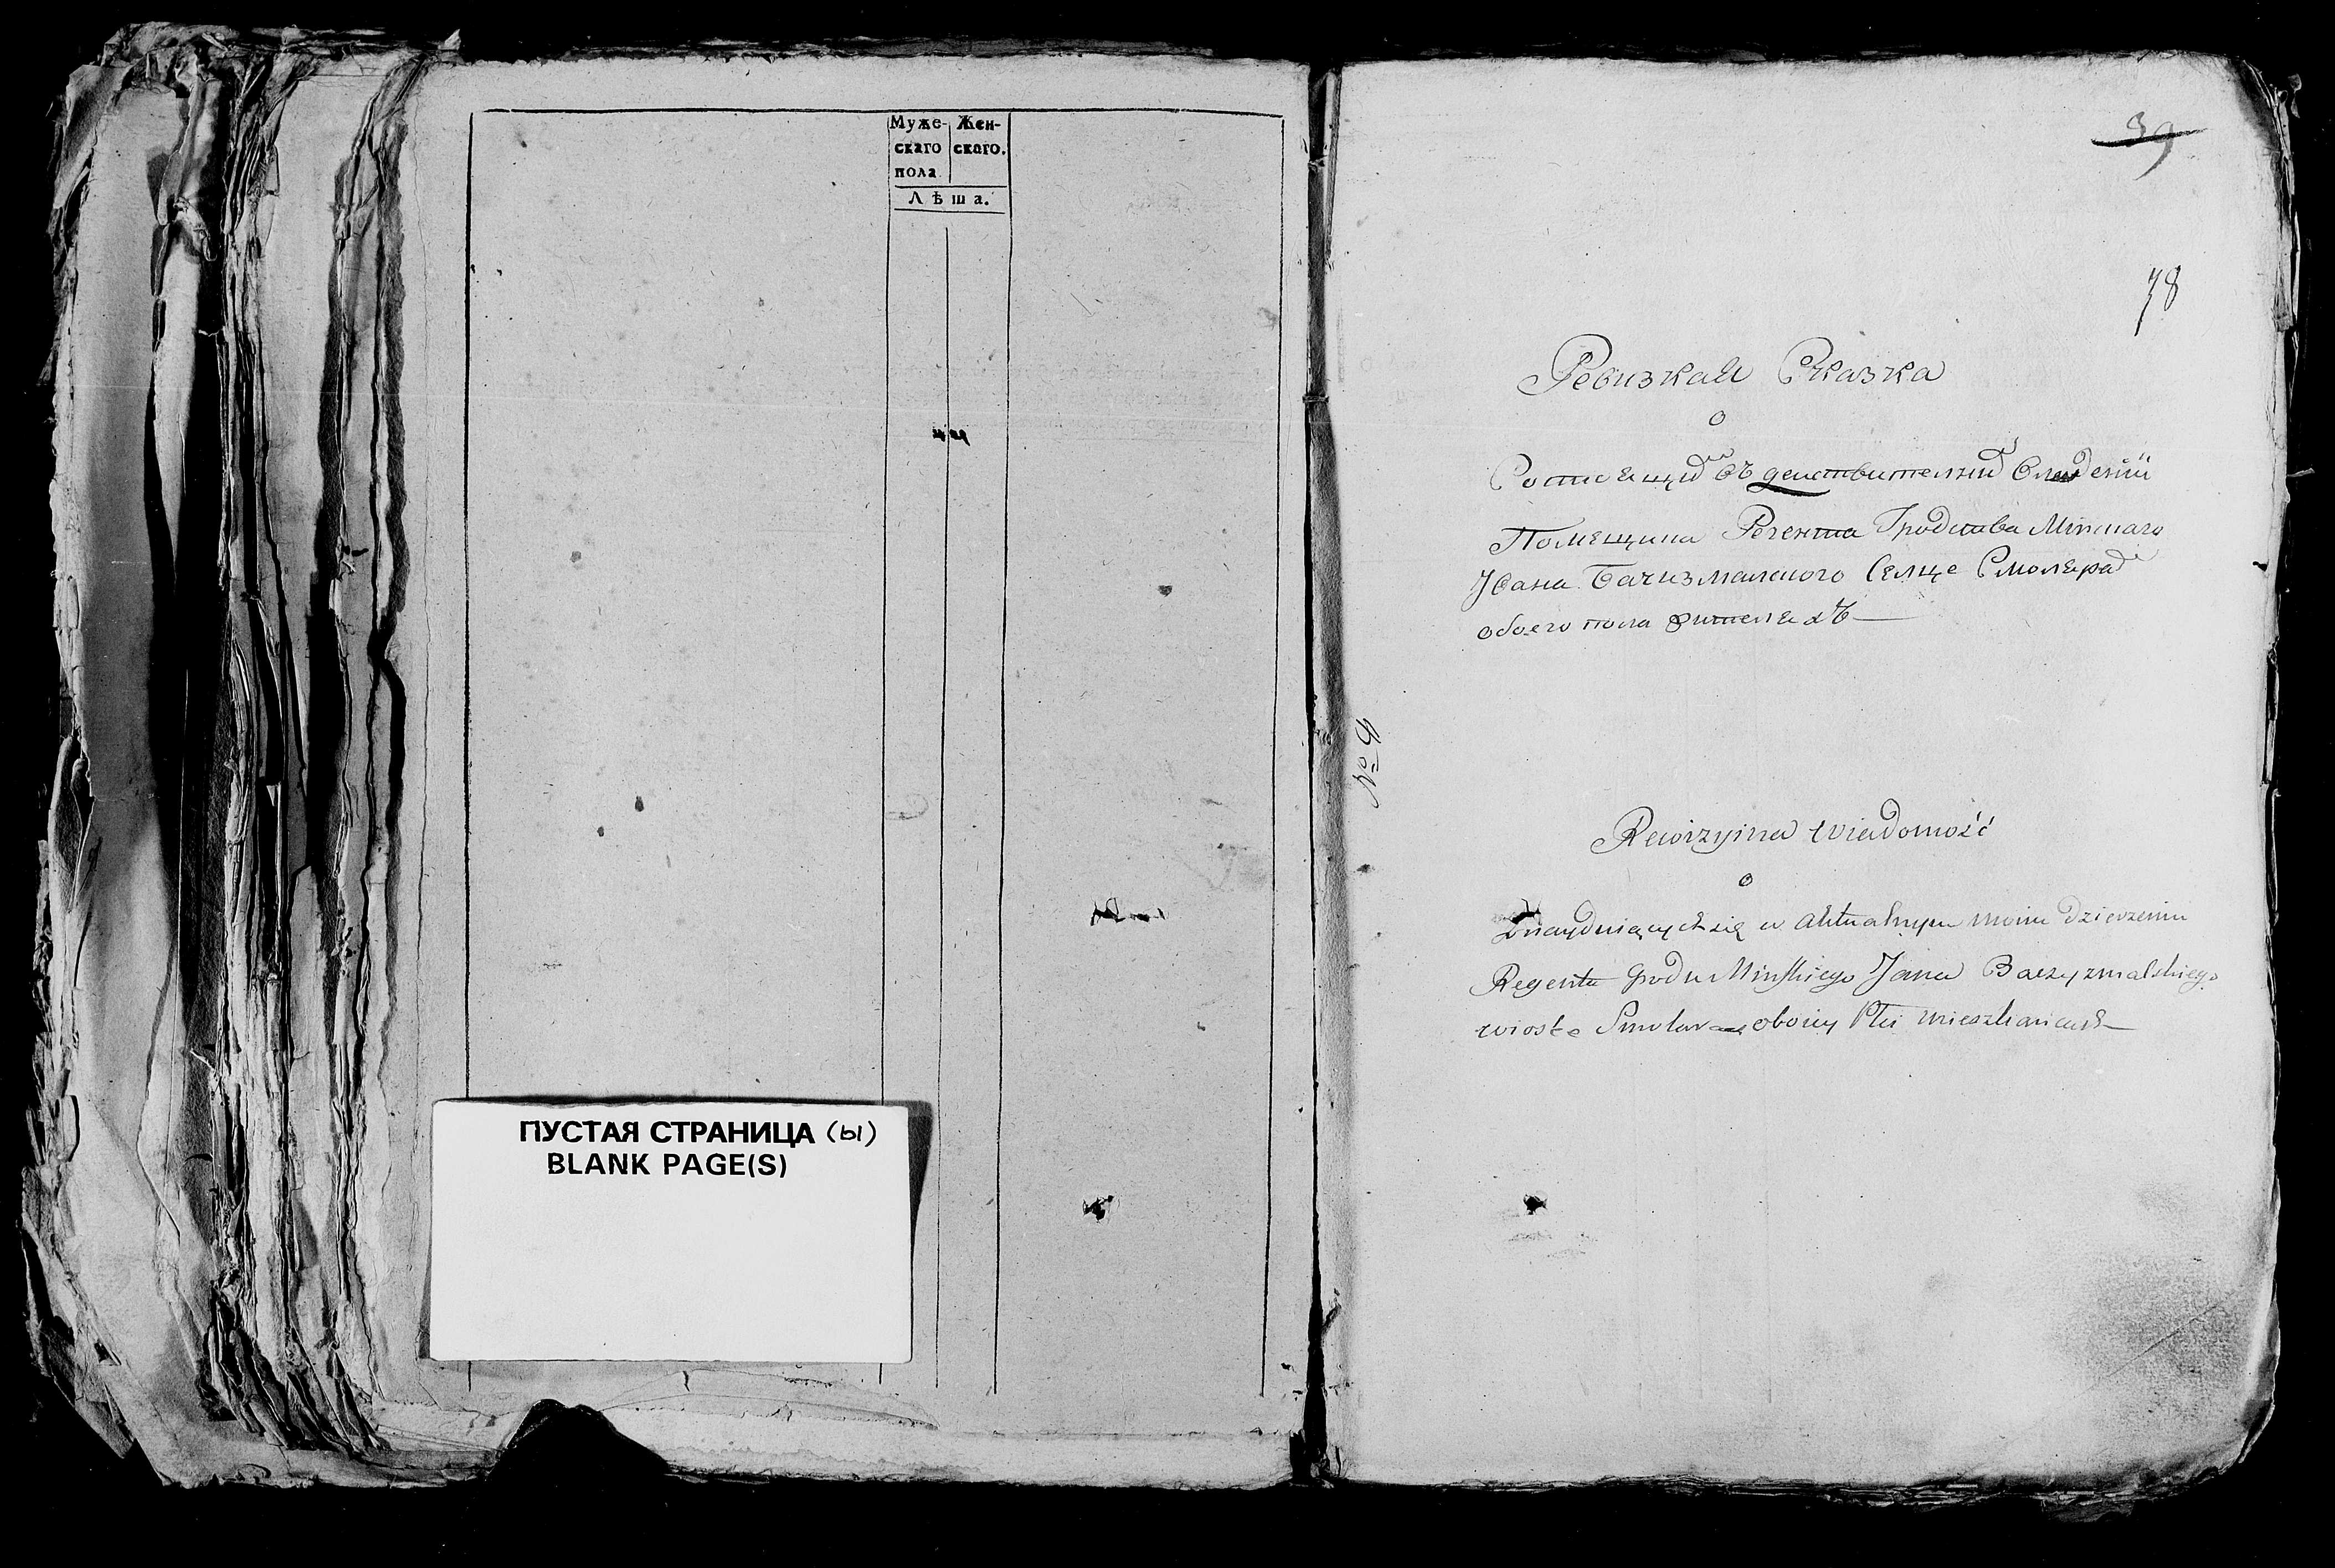 Муже- Жен-
скаго скаго.
пола
Лѣта.
ПУСТАЯ СТРАНИЦА (ы)
BLANK PAGE(S)
39
78
Ревизкая Сказка
о
Состоящих въ действителнм Владении
Помещика Регента Гродства Минскаго
Ивана Бачизмалского Селце
обоего пола жителяхъ
Rewizyina wiadomość
o
Znayduiących się w Aktualnym moim dzierzeniu
Regenta Grodu Minskiego Jana Baczyzmalskiego
oboiey Płci mieszkańcach